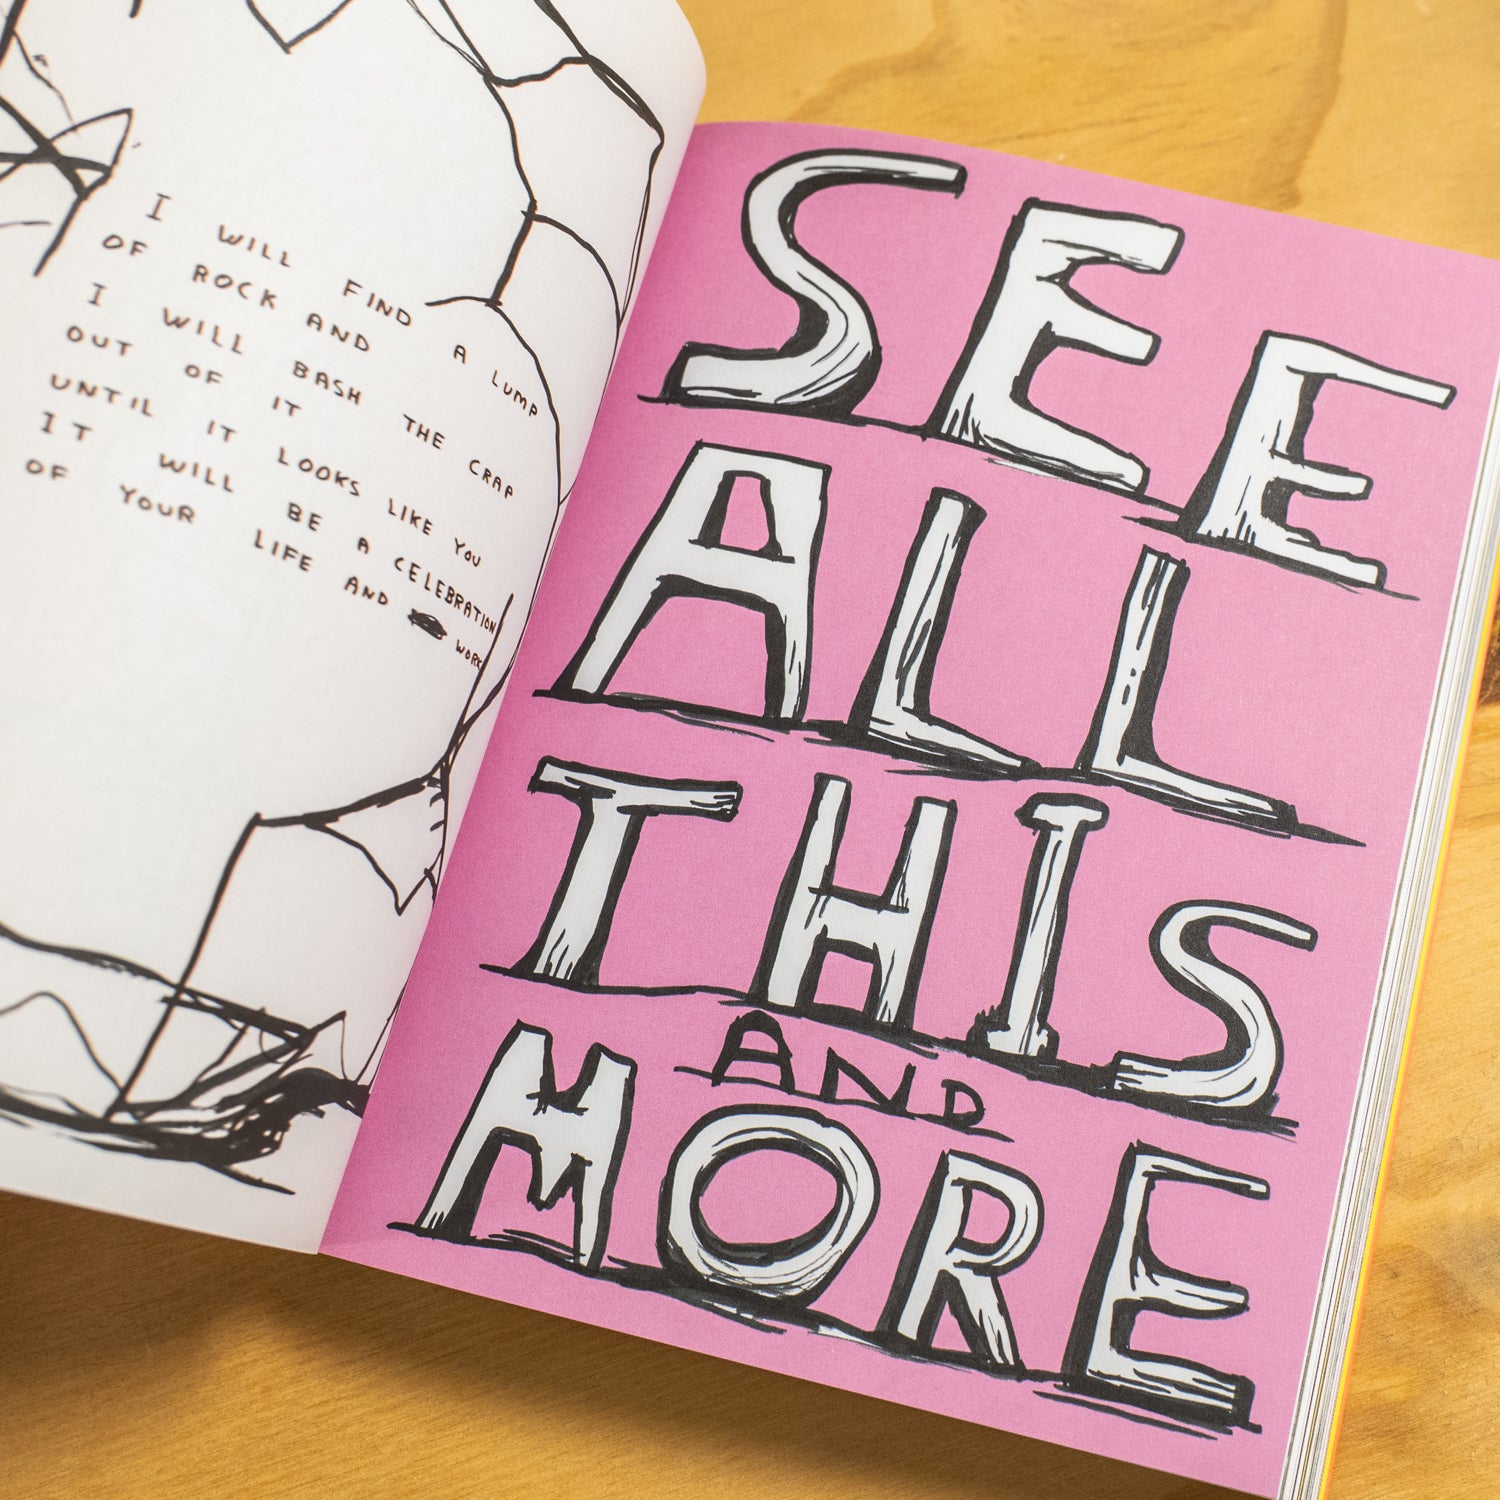 I WILL FIND A LUMP
OF ROCK AND
I WILL BASH THE CRAP
OUT OF IT
UNTIL IT LOOKS LIKE YOU
IT WILL BE A CELEBRATION
OF YOUR LIFE AND WORK
SEE
ALL
THIS
AND
MORE